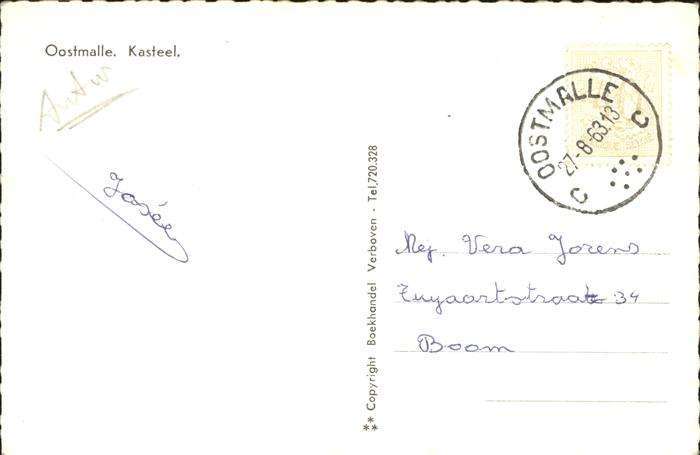 Oostmalle. Kasteel.
Josée
** Copyright Boekhandel Verboven - Tel. 720.328
OOSTMALLE
27-8-63.13
C C
Mej. Vera Jorens
34
Boom